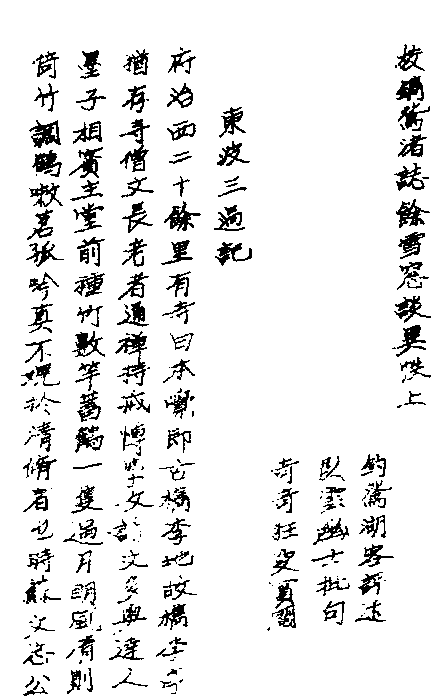 校鐫鴛渚誌餘雪窓談異帙上
釣鴛湖客評述
臥雲幽士批句
奇奇狂叟
東坡三過記
府治西二十餘里有寺曰本覺即古檇李地故檇李亭
猶存寺僧文長老者通禪持戒博學攻詩文多與達人
墨子相賓主堂前種竹數竿蓄鶴一隻遇月明風清則
倚竹調鶴嗽茗孤吟真不愧於清脩者也時蘇文忠公